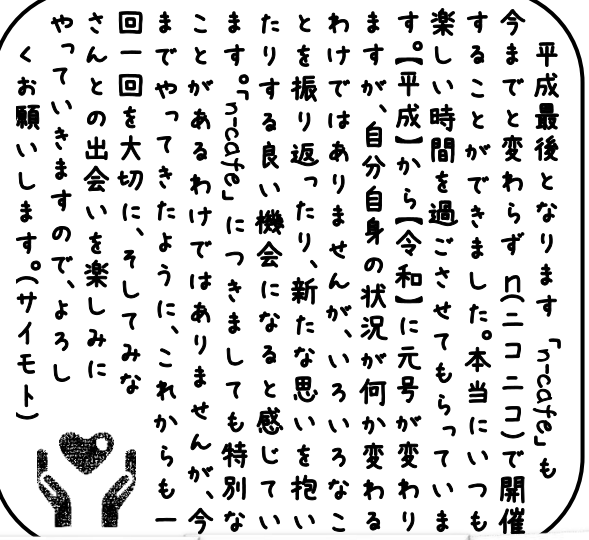 平成最後となります『n-cafe』も
今までと変わらずn(ニコニコ)で開催
することができました。本当にいつも
楽しい時間を過ごさせてもらっていま
す。【平成】から【令和】に元号が変わり
ますが、自分自身の状況が何か変わる
わけではありませんが、いろいろなこ
とを振り返ったり、新たな思いを抱い
たりする良い機会になると感じてい
ます。『n-cafe』につきましても特別な
ことがあるわけではありませんが、今
までやってきたように、これからも一
回一回を大切に、そしてみな
さんとの出会いを楽しみに
やっていきますので、よろし
くお願いします。(サイモト)